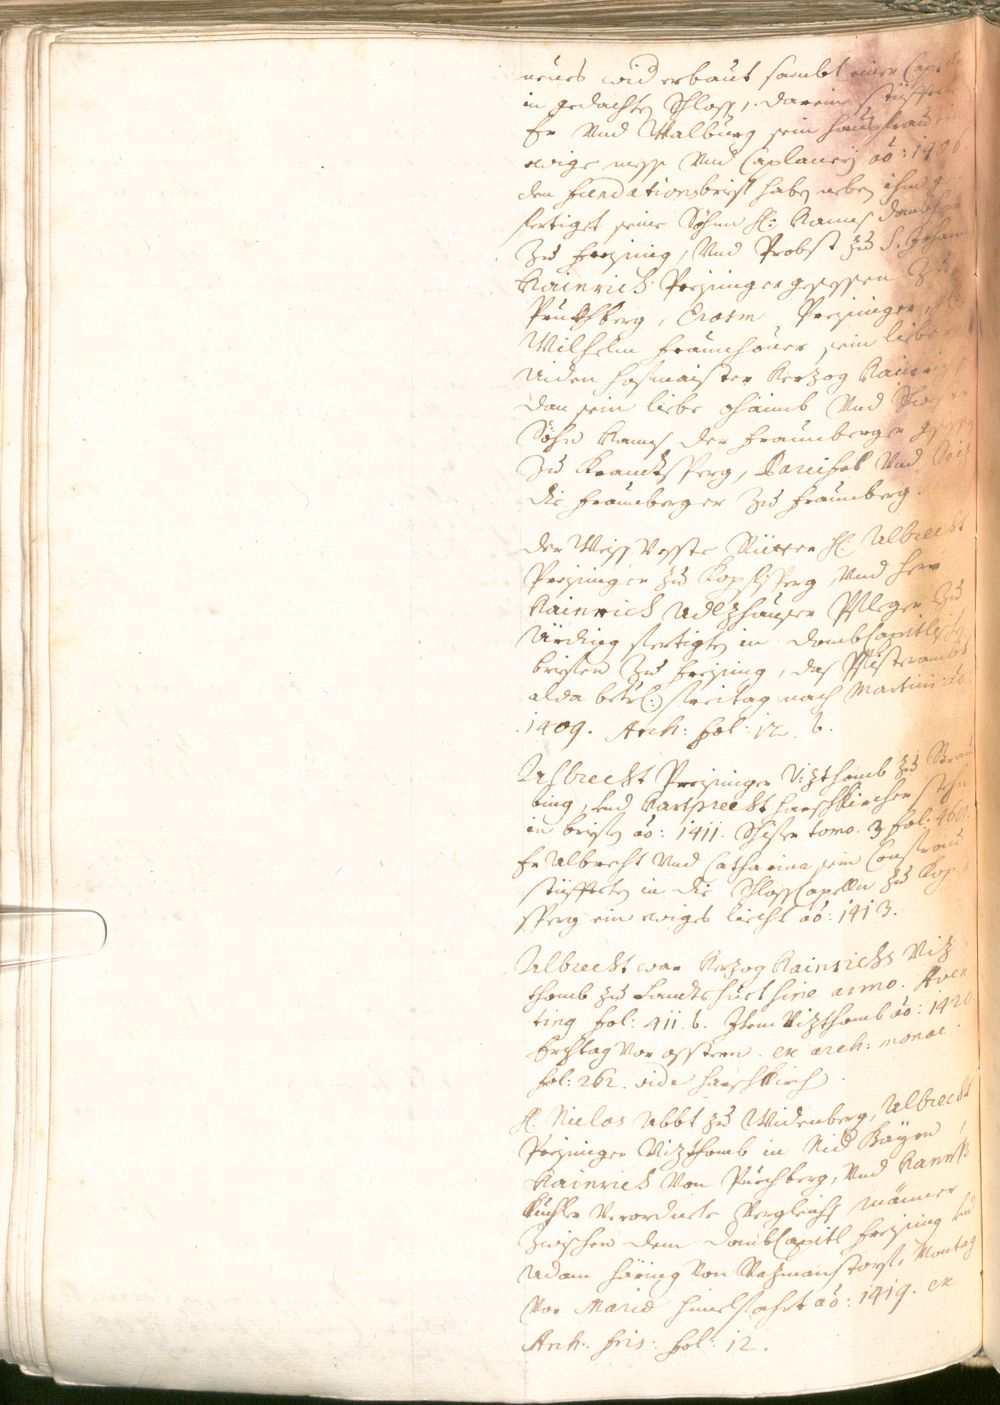 neues wid erbaut sambt einer Cap
in gedachten Schloss, darein stüfft
Er Vnd Walburg sein hausfrau
ewige mess Vnd Caplaney aõ: 14
den fundationsbrief haben neben ihm
fertiget seine Söhn H: Hanns domher
Zu Freising, Vnd Probst zu S. Johann
Hainrich Preisinger gesessen Zu
Pruckhberg, Erasm Preisinger,
Wilhelm Fraunhouer sein lieber
Aiden hofmaister Herzog Hainrich
dan sein liebe ohäimb Vnd Schwester
Söhn Hanns der Fraunberger gesessen
Zu Prandtsperg, Parcifal Vnd Seiz
die Fraunberger Zu Fraunberg.
der Weiss Vesste Ritter H: Albrecht
Preisinger zu Kopfsperg, Vnd herr
Hainrich Adlzhauser Pfleger Zu
Ärding fertigten in dombCapitls
briefen Zu Freising, das Pfisterambt
alda betr: freitag nach Martini aõ
1409. Arch: fol: 12. b.
Albrecht Preisinger Vizthomb zu Strau
bing, Vnd Hartpreckt Harschkircher
in brief aõ: 1411. tomo. 3 fol: 460.
Er Albrecht Vnd Catharina sein Consfraw
stüfften in die SchlossCapelln zu Kop
sperg ein ewiges liecht aõ: 1413.
Albrecht war Herzog Hainrichs Viz
thomb zu Landtshuet sine anno. Aven
ting fol: 411. b. Item Vizthomb aõ: 1420
Erchtag Vor osstern. ex arch: monac.
fol: 262. vide Harschkirch.
H: Niclas Abbt zu Widenberg, Albrecht
Preisinger Vizthomb in Nid Bayrn,
Hainrich Von Puechberg, Vnd Hanns
Kuchler Verordnete Vergleichs männer
Zwischen dem dombCapitl Freising Vnd
Adam Häring Von Vazmanstorf, Montag
Vor Mariæ himelfahrt aõ: 1419. ex
Arch: fris: fol: 12.